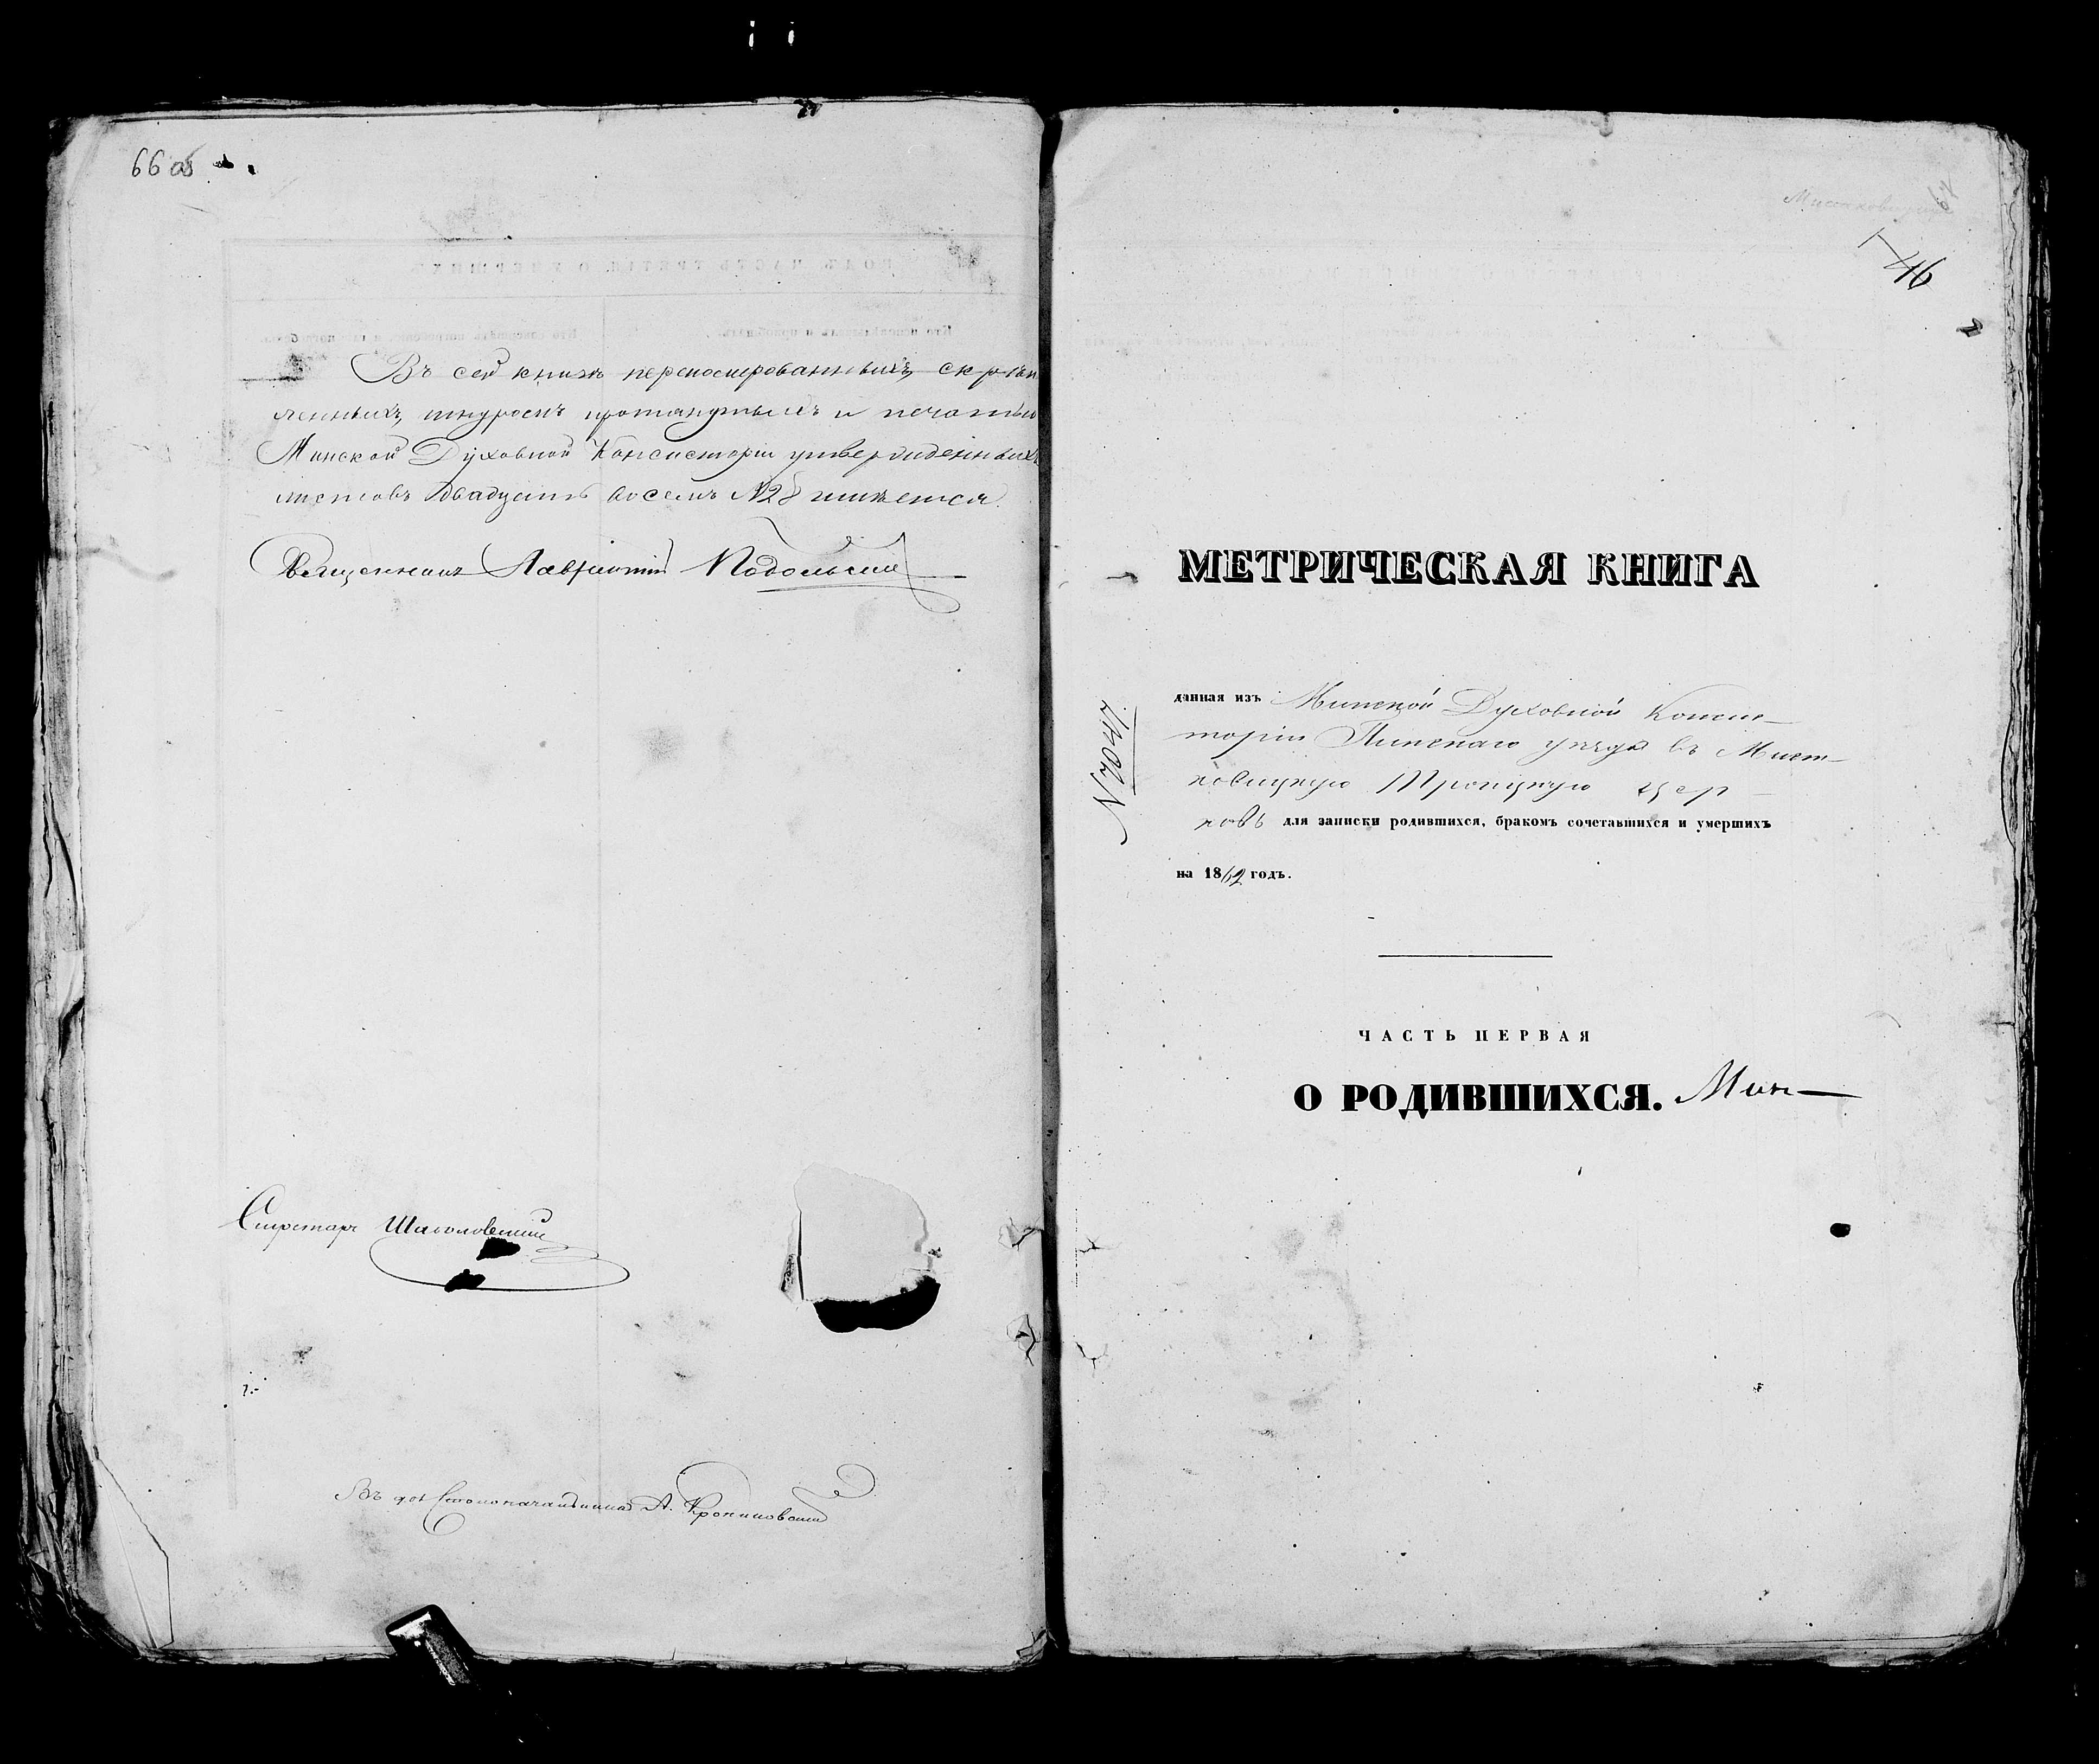 66 об
Въ сей книгѣ перенумерованныхъ, скрѣп
ленныхъ, шнуромъ протянутымъ и печатью
Минской Духовной Консисторіи утвержденныхъ
листовъ двадцать восемь №28 имѣется.
Священникъ Лаврентій Подольскій
Секретарь
Столоначальника А.
67
46
МЕТРИЧЕСКАЯ КНИГА
данная изъ Минской Духовной Консис-
торіи Пинскаго уѣзда въ Мист-
ковицкую Троицкую Цер-
ковь для записки родившихся, бракомъ сочетавшихся и умершихъ
на 1862 годъ.
ЧАСТЬ ПЕРВАЯ
О РОДИВШИХСЯ. Мин—